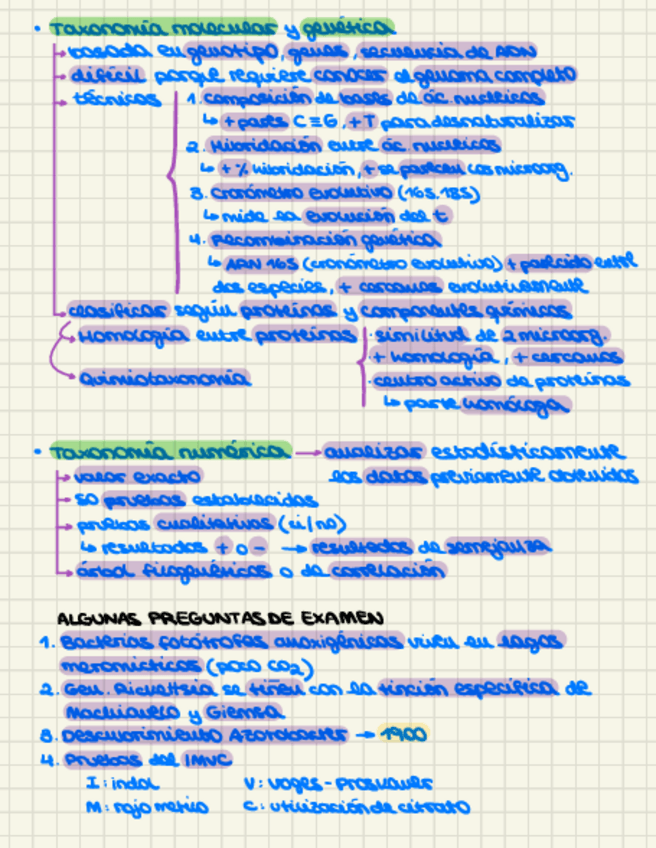 • Taxonomía molecular y genética
→ basada en genotipo, genes, secuencia de ADN
→ difícil porque requiere conocer el genoma completo
→ técnicas
1. composición de bases de ác. nucleicos
↳ + pares C≡G, + T para desnaturalizar
2. Hibridación entre ác. nucleicos
↳ + % hibridación, + se parecen los microorg.
3. Cronómetro evolutivo (16S, 18S)
↳ mide la evolución del t
4. Recombinación genética
↳ ARN 16S (cronómetro evolutivo) + parecido entre
dos especies, + cercanas evolutivamente
→ clasificar según proteínas y componentes químicos
→ Homología entre proteínas
· similitud de 2 microorg.
+ homología, + cercanos
· centro activo de proteínas
↳ parte homóloga
→ Quimiotaxonomía
• Taxonomía numérica → analizar estadísticamente
los datos previamente obtenidos
→ valor exacto
→ 50 pruebas establecidas
→ pruebas cualitativas (si/no)
↳ resultados + o - → resultados de semejanza
→ árbol filogenéticos o de correlación
ALGUNAS PREGUNTAS DE EXAMEN
1. Bacterias fotótrofas anoxigénicas viven en lagos
meromícticos (poco CO2)
2. Gen. Rickettsia se tiñen con la tinción específica de
Machiavelo y Giemsa
3. Descubrimiento Azotobacter → 1900
4. Pruebas del IMVC
I: indol V: voges-proskauer
M: rojo metilo C: utilización de citrato